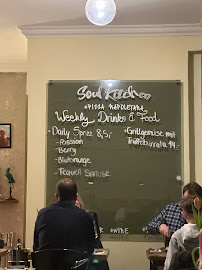 Soul Kitchen
PIZZA NAPOLETANA
Weekly Drinks & Food
Daily Spritz 8,5,-
- Passion
- Berry
- Blutorange
- Tequila Sunrise
- Grillgemüse mit
Trüffelburrata 14,-
#WINE